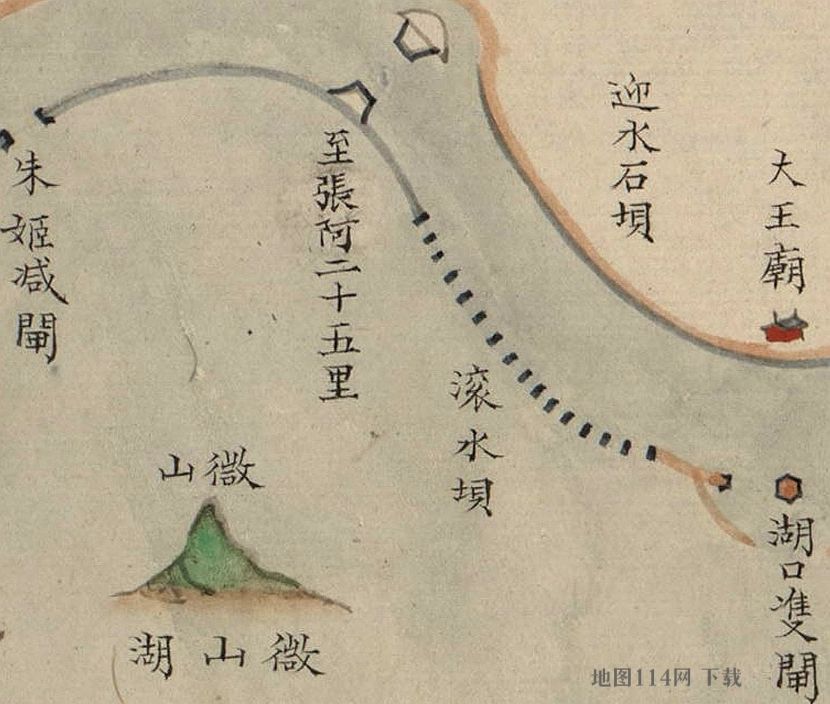 大王廟
迎水石垻
湖口雙閘
滚水垻
至張阿二十五里
朱姬减閘
微山
微山湖
地图114网 下载